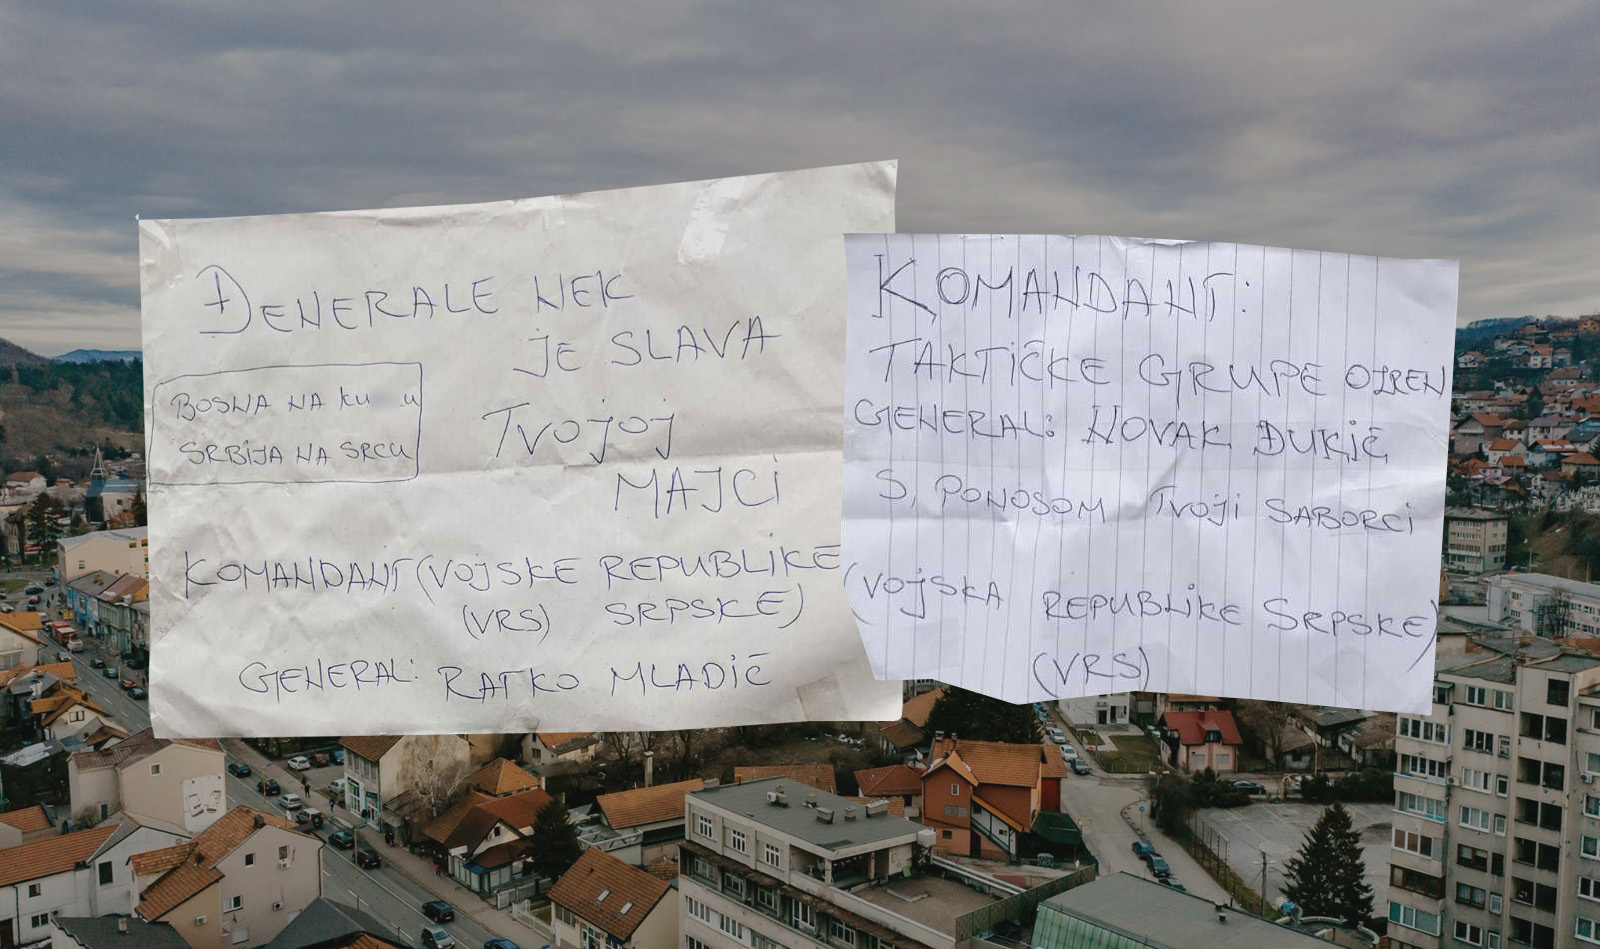 ĐENERALE NEK
JE SLAVA
TVOJOJ
MAJCI
BOSNA NA
SRBIJA NA SRCU
KOMANDANT (VOJSKE REPUBLIKE
(VRS) SRPSKE)
GENERAL: RATKO MLADIĆ
KOMANDANT:
TAKTIČKE GRUPE OZREN
GENERAL: NOVAK ĐUKIĆ
S, PONOSOM TVOJI SABORCI
(VOJSKA REPUBLIKE SRPSKE)
(VRS)